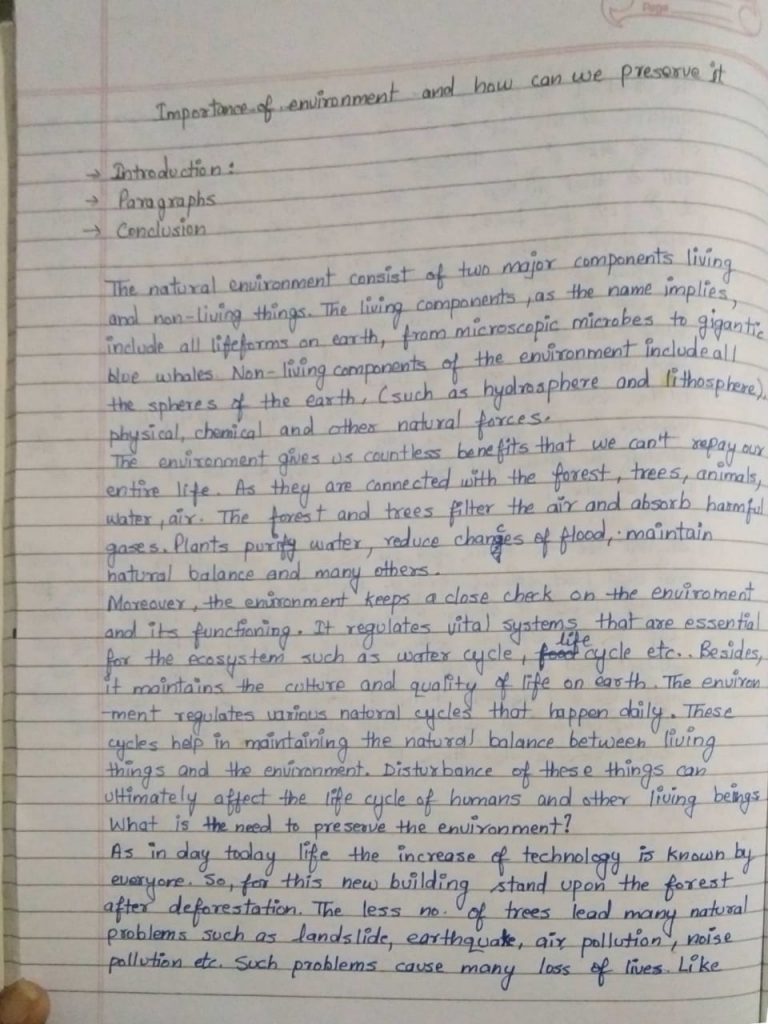 Page
Importance of environment and how can we preserve it
→ Introduction:
→ Paragraphs
→ Conclusion
The natural environment consist of two major components living
and non-living things. The living components, as the name implies,
include all lifeforms on earth, from microscopic microbes to gigantic
blue whales. Non-living components of the environment include all
the spheres of the earth, (such as hydrosphere and lithosphere),
physical, chemical and other natural forces.
The environment gives us countless benefits that we can't repay our
entire life. As they are connected with the forest, trees, animals,
water, air. The forest and trees filter the air and absorb harmful
gases. Plants purify water, reduce chances of flood, maintain
natural balance and many others.
Moreover, the environment keeps a close check on the enviroment
and its functioning. It regulates vital systems that are essential
for the ecosystem such as water cycle, life cycle etc.. Besides,
it maintains the culture and quality of life on earth. The environ
-ment regulates various natural cycles that happen daily. These
cycles help in maintaining the natural balance between living
things and the environment. Disturbance of these things can
ultimately affect the life cycle of humans and other living beings
What is the need to preserve the environment?
As in day today life the increase of technology is known by
everyone. So, for this new building stand upon the forest
after deforestation. The less no. of trees lead many natural
problems such as landslide, earthquake, air pollution, noise
pollution etc. Such problems cause many loss of lives. Like